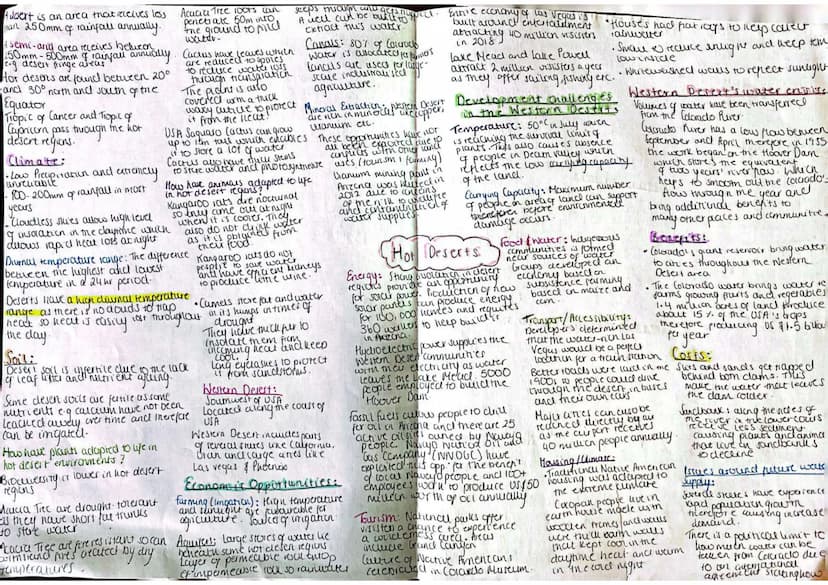 Desert is an area that receives less
than 250mm of rainfall annually.
Semi-arid area receives between
250mm - 500mm of rainfall annually
e.g desert fringe areas
Hot deserts are found between 20°
and 30° north and south of the
Equator
Tropic of Cancer and Tropic of
Capricorn pass through the hot
desert regions.
Climate:
• Low Precipitation and extremely
unreliable
100 - 200mm of rainfall in most
years
• Cloudless skies allow high level
of insolation in the daytime which
allows rapid heat loss at night
Diurnal temperature range: The difference
between the highest and lowest
temperature in a 24hr period.
Deserts have a high diurnal temperature
range as there is no clouds to trap
heat so heat is easily lost throughout
the day.
Soil:
Desert soil is infertile due to the lack
of leaf litter and nutrient cycling
Some desert soils are fertile as some
nutrients e.g calcium have not been
leached away over time and therefore
can be irrigated.
How have plants adapted to life in
hot desert environments?
Biodiversity is lower in hot desert
regions
Acacia Tree are drought-tolerant
as they have short fat trunks
to store water
Acacia Tree are fire resistant so can
withstand fires created by dry
temperatures.
Acacia Tree roots can
penetrate 50m into
the ground to find
water
Cactus have leaves which
are reduced to spines
to reduce water loss
through transpiration
The plant is also
covered with a thick
waxy cuticle to protect
it from the heat.
USA Saguaro Cactus can grow
up to 15m tall which enables
it to store a lot of water
Cactus also have thick stems
to store water and photosynthesise
How have animals adapted to life
in hot desert regions?
Kangaroo rats are nocturnal
so they come out at night
when it is cooler. They
also do not drink water
as it is obtained from
their food
Kangaroo rats do not
perspire to save water
and have efficient kidneys
to produce little urine.
• Camels store fat and water
in its humps in times of
drought
They have thick fur to
insulate them from
incoming heat and keep
cool.
Long eyelashes to protect
it from sandstorms.
Western Desert:
Southwest of USA
Located along the coasts of
USA
Western Desert includes parts
of several states like California,
Utah and large cities like
Las Vegas & Phoenix
Economic Opportunities:
Farming (irrigation): High temperature
and sunlight are favourable for
agriculture. Source of irrigation
Aquifers: Large stores of water lie
beneath some hot desert regions
Layer of permeable rock on top
of impermeable rock so rainwater
seeps through and gets trapped.
A well can be built to
extract this water
Canals: 80% of Colorado
water is allocated to farmers
Canals are used for large-
scale industrialised
agriculture.
Mineral Extraction: Western Desert
are rich in minerals like copper,
uranium etc.
These opportunities have not
all been exploited due to
conflicts with other land
uses (tourism & farming)
Uranium mining ban in
Arizona was limited in
2012 due to concerns
of the risk to wildlife
and contamination of
water supplies
Hot Deserts
Energy: Strong insolation in desert
regions provide an opportunity
for solar power. Production of new
solar plants can produce energy
for 100,000 homes and requires
360 workers to help build it
in Arizona
Hydroelectric power supplies the
Western Desert communities
with their electricity as water
leaves the Lake Mead. 5000
people employed to build the
Hoover Dam
Fossil fuels allows people to drill
for oil in Arizona and there are 25
active oil fields owned by Navajo
people. Navajo Nation Oil and
Gas Company (NNOGC) have
exploited this opp. for the benefit
of local Navajo people and 100+
employees work to produce US$50
million worth of oil annually
Tourism: National parks offer
visitors a chance to experience
a wilderness area. Areas
include Grand Canyon
Culture of Native Americans
celebrated in Colorado Museum.
Entire economy of Las Vegas is
built around entertainment
attracting 40 million visitors
in 2013
Lake Mead and Lake Powell
attract 2 million visitors a year
as they offer sailing, fishing etc.
Development challenges
in the Western Desert:
Temperature: 50°C in July which
is reaching the survival limit of
plants. This also causes absence
of people in Death Valley which
reflects the low carrying capacity
of the land.
Carrying Capacity: Maximum number
of people an area of land can support
before environmental
damage occurs.
Food/Water: Indigenous
communities is formed
near sources of water
Groups developed an
economy based on
subsistence farming
based on maize and
corn.
Transport/Accessibility:
Developers determined
that the water-rich Las
Vegas would be a perfect
location for a train station
Better roads were laid in the
1900s so people could drive
through the desert in buses
and their own cars
Major cities can now be
reached directly by air
as the airport receives
40 million people annually
Housing/Climate:
Traditional Native American
housing was adapted to
the extreme climate
people live in
earth house made with
wooden frames and walls
were thick earth walls
that kept cool in the
daytime heat and warm
in the cold night
• Houses had flat roofs to help collect
rainwater
• Small to reduce sunlight and keep temp
low inside
• Whitewashed walls to reflect sunlight
Western Desert's water
Volumes of water have been transferred
from the Colorado River
Colorado River has a low flow between
September and April therefore in 1935
the work began on the Hoover Dam
which stores the equivalent
of two years' river flow. Which
helps to smoothen out the Colorado's
flows through the year and
bring additional benefits to
many other places and communities.
Benefits:
• Colorado's giant reservoir bring water
to cities throughout the Western
Desert area
• The Colorado water brings water to
farms growing fruits and vegetables
1.4 million acres of land produce
about 15% of the USA's crops
therefore producing US $1.5 billion
per year
Costs:
Silts and sands get trapped
behind both dams. This
make the water that leaves
the dam colder.
Sandbanks along the sides of
the river in the lower course
receive less sediment
causing plants and animals
that live on sandbanks
to decline
Issues around future water
supply:
Several states have experienced
rapid population growth
therefore causing increase
demand.
There is a political limit to
how much water can be
taken from Colorado due
to an international
agreement